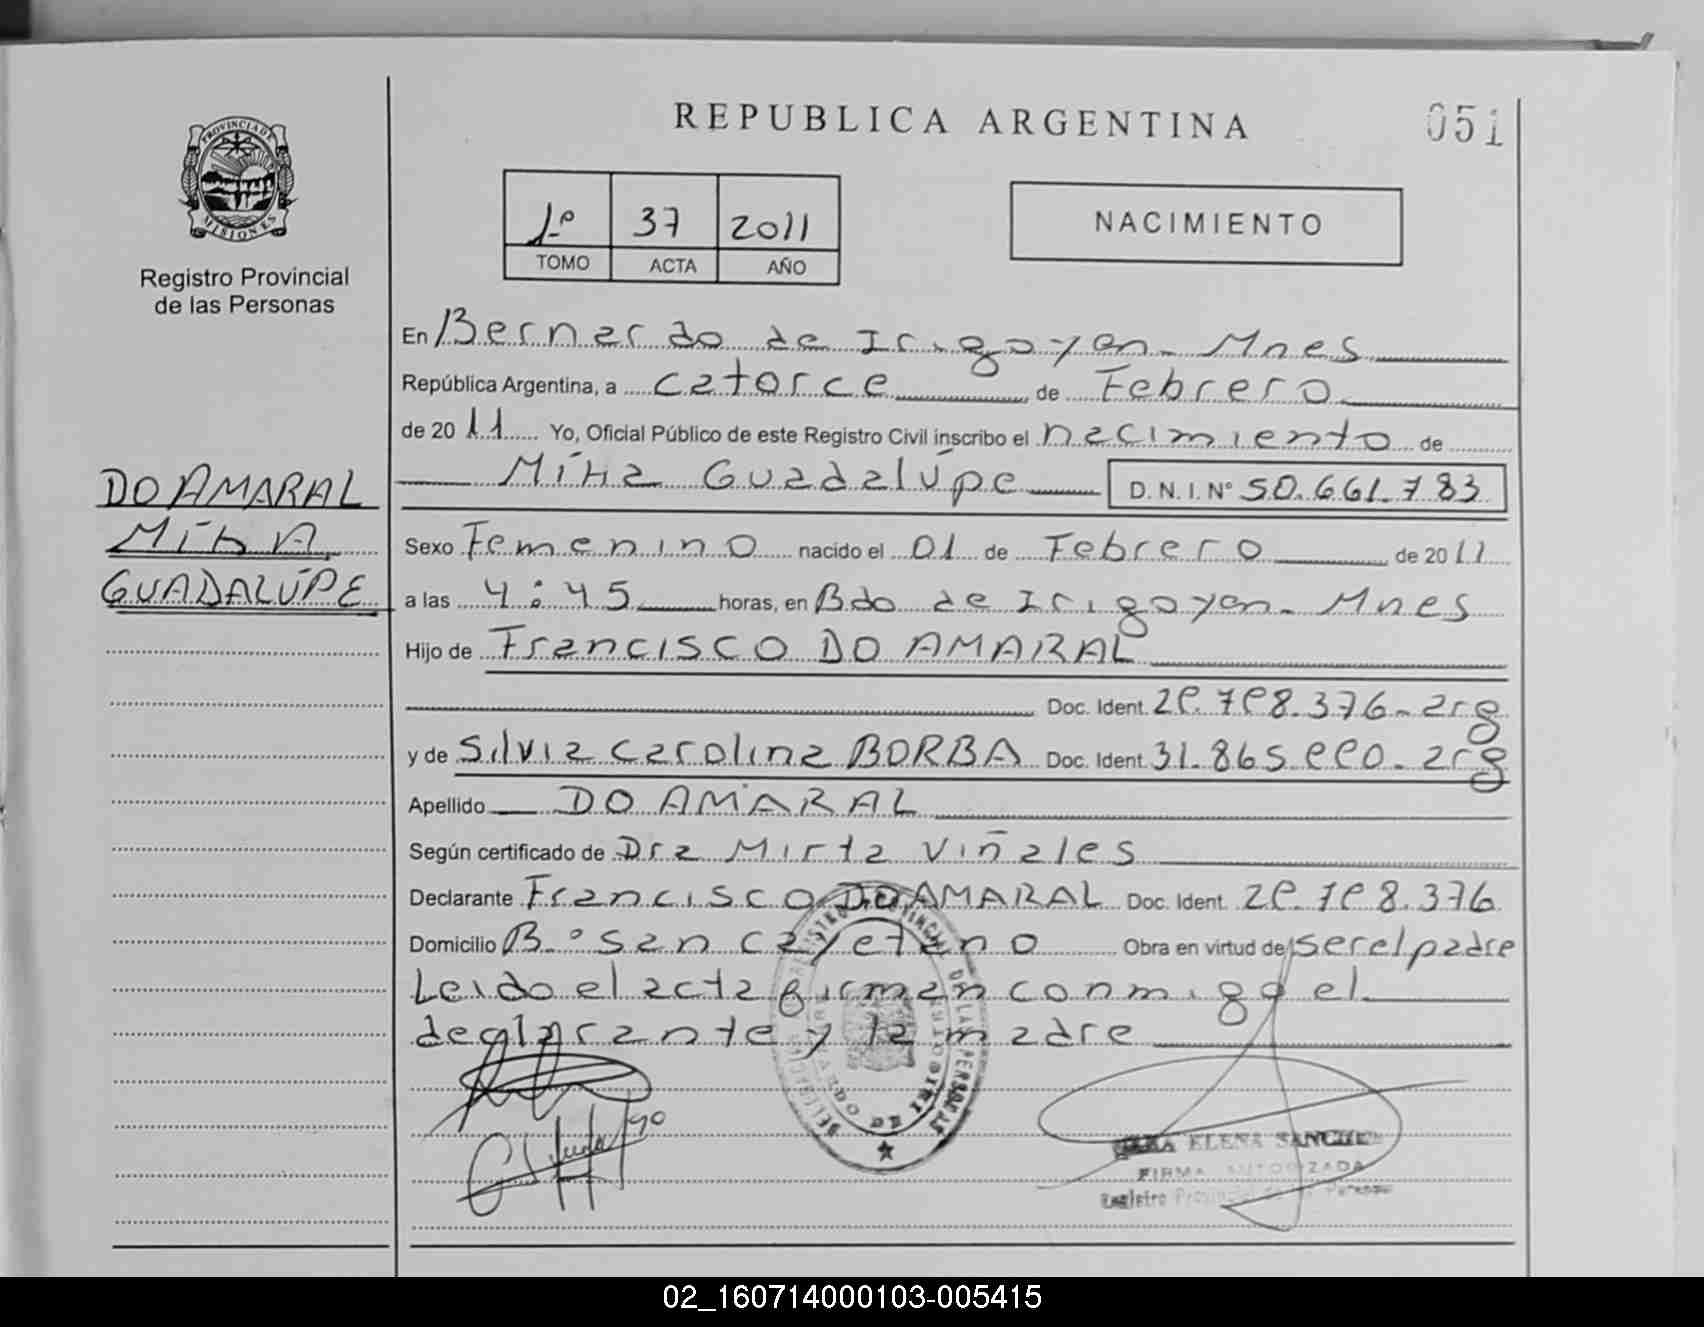 REPUBLICA ARGENTINA
051
PROVINCIA DE
MISIONES
Registro Provincial
de las Personas
1º 37 2011
TOMO ACTA AÑO
NACIMIENTO
En Bernardo de Irigoyen - Mnes
República Argentina, a catorce de Febrero
de 2011 Yo, Oficial Público de este Registro Civil inscribo el nacimiento de
Míha Guadalúpe D.N.I. Nº 50.661.783
DO AMARAL
Míha
GUADALÚPE
Sexo Femenino nacido el 01 de Febrero de 2011
a las 4:45 horas, en Bdo de Irigoyen - Mnes
Hijo de Francisco DO AMARAL
Doc. Ident.
y de Silvia Carolina BORBA Doc. Ident.
Apellido DO AMARAL
Según certificado de Dra Mirta Viñales
Declarante Francisco DO AMARAL Doc. Ident.
Domicilio Bº San Cayetano Obra en virtud de ser el padre
Leido el acta firman conmigo el
declarante y la madre
ELENA SANCHEZ
FIRMA AUTORIZADA
Registro Provincial de las Personas
02_160714000103-005415